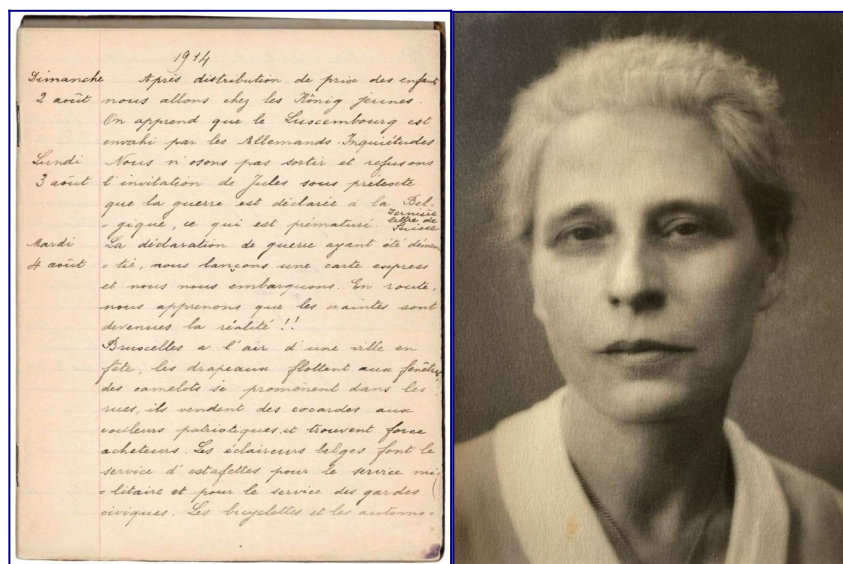 1914
Dimanche Après distribution de prix des enfants
2 août nous allons chez les König jeunes.
On apprend que le Luxembourg est
envahi par les Allemands. Inquiétudes
Lundi Nous n'osons pas sortir et refusons
3 août l'invitation de Jules sous prétexte
que la guerre est déclarée à la Bel-
-gique, ce qui est prématuré. Dernière lettre de Suisse
Mardi La déclaration de guerre ayant été démen-
4 août -tie, nous lançons une carte express
et nous nous embarquons. En route,
nous apprenons que les craintes sont
devenues la réalité !!
Bruxelles a l'air d'une ville en
fête, les drapeaux flottent aux fenêtres,
des camelots se promènent dans les
rues, ils vendent des cocardes aux
couleurs patriotiques et trouvent force
acheteurs. Les éclaireurs belges font le
service d'estafettes pour le service mi-
-litaire et pour le service des gardes
civiques. Les bicyclettes et les automo-